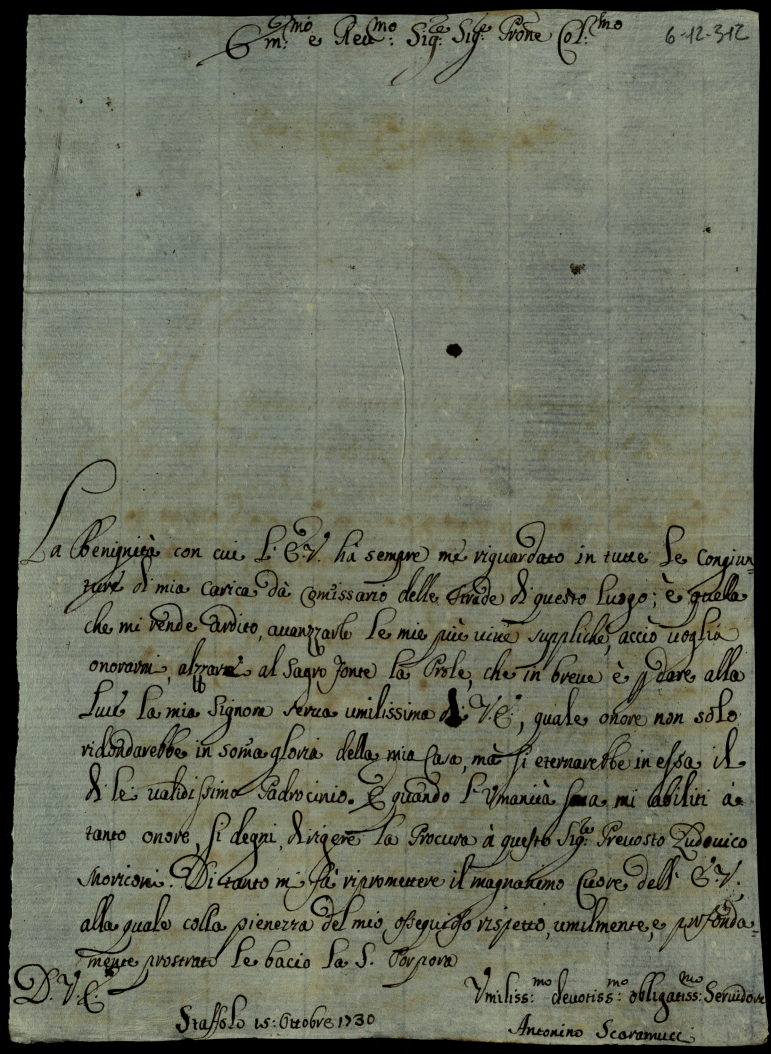 Em:mo e Reu:mo Sig:re Sig:re Prone Col:mo
6-12-312
La Benignità con cui L'E.V. hà sempre me riguardato in tutte le congiun=
ture di mia carica dà Comissario delle strade di questo luogo; è quella
che mi rende ardito, auanzzarle le mie più viue suppliche, acciò uoglia
onorarmi, alzzare al Sagro Fonte la Prole, che in breue è p dare alla
Luce la mia Signora serua umilissima di V.E., quale onore non solo
ridondarebbe in soma gloria della mia Casa, mà si eternarebbe in essa il
di lei ualidissimo Padrocinio. E quando l'Umanità sua mi abiliti à
tanto onore, si degni, dirigere la Procura à questo Sig:re Preuosto Ludouico
Moriconi. Di tanto mi fà ripromettere il magnanimo Cuore dell' E.V.
alla quale colla pienezza del mio ossequioso rispetto, umilmente, e profonda=
mente prostrato le bacio la S. Porpora
D. V. E.
Umiliss:mo deuotiss:mo obligatiss:mo Seruidore
Staffolo 15: Ottobre 1730
Antonino Scaramucci